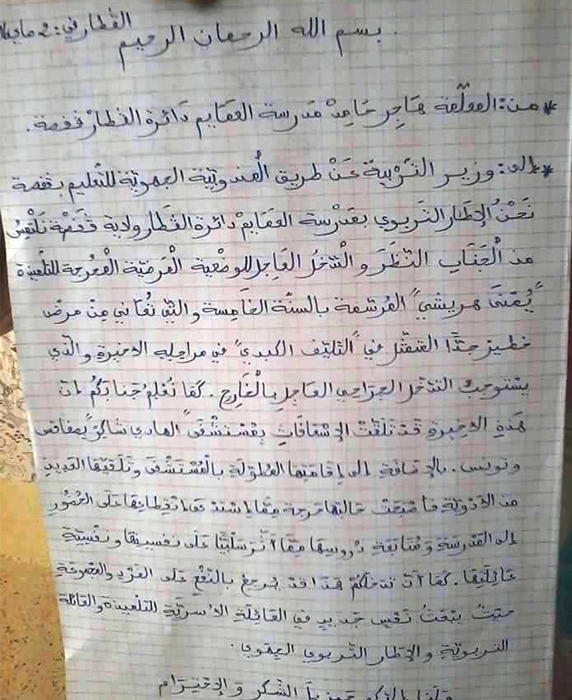 القطار في: 2 ماي
بسم الله الرحمان الرحيم
* من: المعلّمة هاجر حامد مدرسة العقايم دائرة القطار قفصة.
* إلى: وزير التّربية عَنْ طريق المندوبيّة الجهويّة للتعليم بقفصة
نَحْنُ الإطار التربوي بمدرسة العقايم دائرة القطار ولاية قفصة نلتمس
من الجناب النّظَرَ و التّدخل العاجل للوضعية المرضيّة الحرجة للتلميذة
"يُمْنَى هريشي" المرسّمة بالسنة الخامسة والتي تُعاني مِنْ مرض
خطير جدًّا المتمثّل في "التّليّف الكبدي" في مراحله الاخيرة والّذي
يستوجبُ التدخّل الجراحي العاجل بالخارج. كمَا نُعْلِمُ جنابكُمْ انّ
هَذِهِ الاخيرة قد تلقّت الإسْعَافَاتِ بمُسْتشْفَى "الهادي شاكر" بصفاقس
وتونس. بالإضافة إلى إقامتها المطوّلة بالمُسْتشْفَى وتلقّيها العديد
من الأدوية فأصبحتْ حالتها حرجة ممّا استدعى انقطاعها على الحضور
إلى المدرسة ومُتابعة دروسها ممّا أثّر سلبيًّا على نفسيتها ونفسيّة
عائلتها. كمَا أنّ تدخلكُمْ هذا قد يرجعُ بالنّفع على الفرد والمجموعة
حيثُ يبعثُ نَفَس جديد في العائلة الأسريّة التلميذة والعائلة
التّربويّة والإطار التّربوي الجهوي.
الشّكر والإحْتِرَام